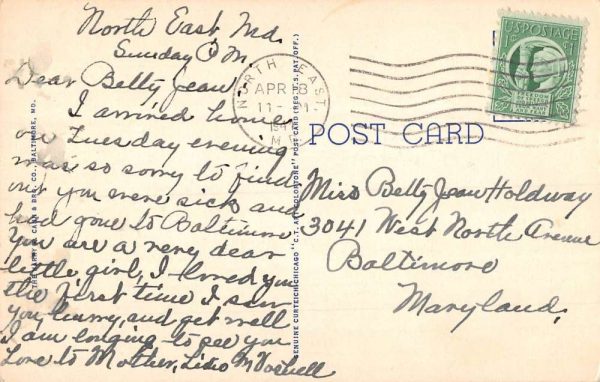 North East, Md.
Sunday P M.
Dear Betty Jean
I arrived home
on Tuesday evening
was so sorry to find
out you were sick and
had gone to Baltimore
You are a very dear
little girl, I loved you
the first time I saw
you hurry, and get well
I am longing to see you
Love to Mother,
NORTH EAST
APR 18
11-
194
M
U.S. POSTAGE
POST CARD
Miss Betty Jean Holdway
3041 West North Avenue
Baltimore
Maryland.
& BRO. CO., BALTIMORE, MD.
GENUINE CURTEICH-CHICAGO "C.T. ART-COLORTONE" POST CARD (REG. U.S. PAT. OFF.)